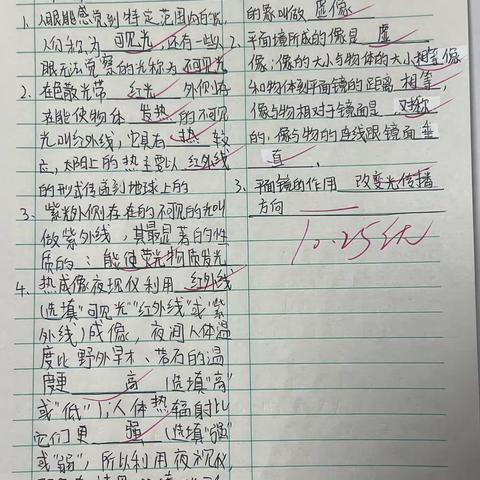 1、人眼能感觉到特定范围内的光,
人们称为 可见光,还有一些人
眼无法觉察的光称为 不可见光
2、在色散光带 红光 外侧,存
在能使物体 发热 的不可见
光叫红外线,它具有 热 较
应,太阳上的热主要以 红外线
的形式传递到地球上的
3、紫光外侧存在的不可见的光叫
做紫外线,其最显著的性
质的:能使荧光物质发光
4、热成像夜视仪利用 红外线
(选填"可见光""红外线"或"紫
外线")成像,夜间人体温
度比野外草木、岩石的温
度更 高 (选填"高"
或"低");人体热辐射比
它们更 强 (选填"强"
或"弱",所以利用夜视仪,
的象叫做 虚像
2、平面境所成的像是 虚
像;像的大小与物体的大小相等,像
和物体到平面镜的距离 相等,
像与物相对于镜面是 对称
的,像与物的连线跟镜面 垂
直.
3、平面镜的作用 改变光传播
方向
10.25